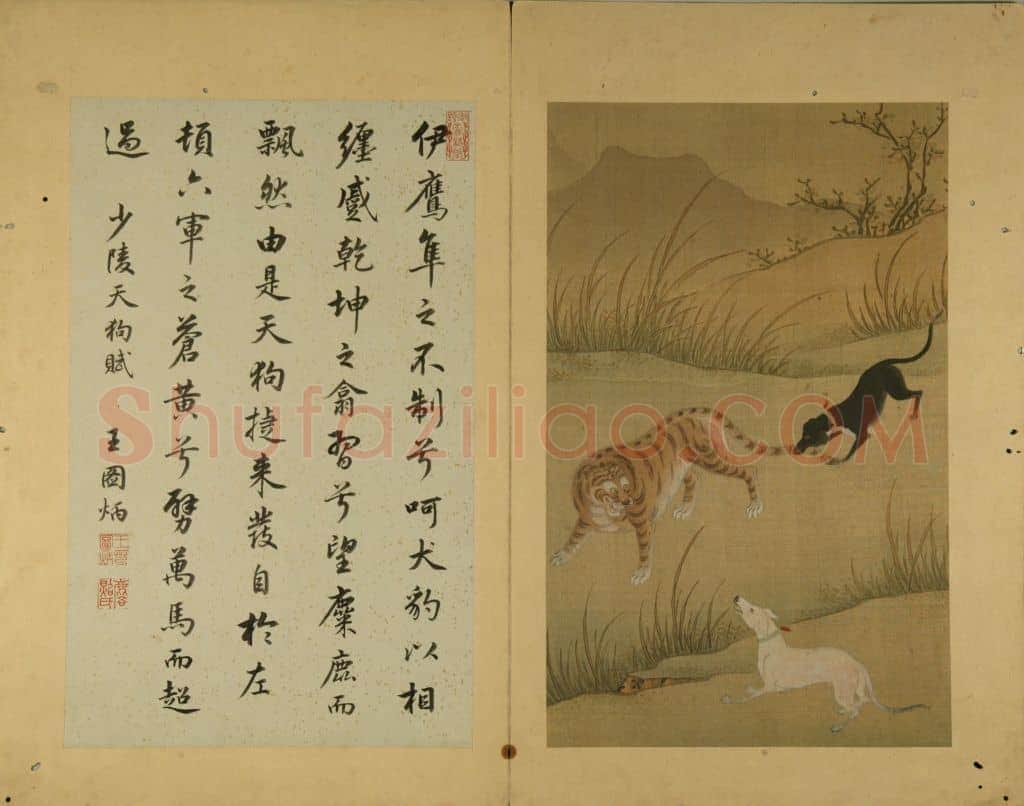 伊鷹隼之不制兮呵犬豹以相
纏蹙乾坤之翕習兮望麋鹿而
飄然由是天狗捷来發自於左
頓六軍之蒼黄兮劈萬馬而超
過
少陵天狗賦 王圖炳
Shufaziliao.COM